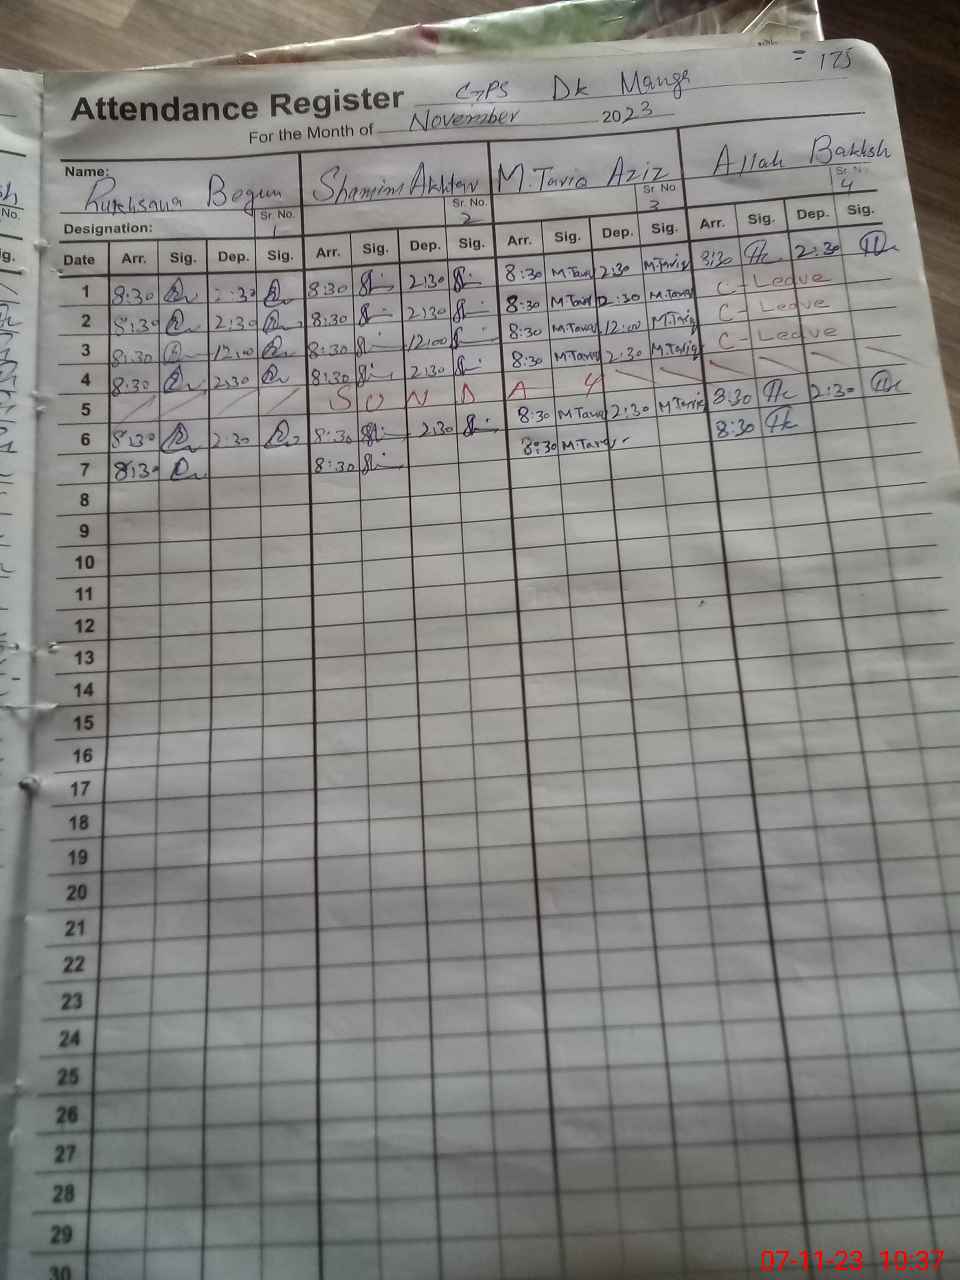 = 175
Attendance Register GPS Dk Manga
For the Month of November 2023
Name: Rukhsana Begum Shamim Akhtar M. Tariq Aziz Allah Bakhsh
Sr. No. 1 Sr. No. 2 Sr. No 3 Sr. No. 4
Designation:
Date Arr. Sig. Dep. Sig. Arr. Sig. Dep. Sig. Arr. Sig. Dep. Sig. Arr. Sig. Dep. Sig.
1 8:30 2:30 8:30 2:30 8:30 M.Tariq 2:30 M.Tariq 8:30 2:30
2 8:30 2:30 8:30 2:30 8:30 M.Tariq 2:30 M.Tariq C-Leave
3 8:30 12:00 8:30 12:00 8:30 M.Tariq 12:00 M.Tariq C-Leave
4 8:30 2:30 8:30 2:30 8:30 M.Tariq 2:30 M.Tariq C-Leave
5 S U N D A Y
6 8:30 2:30 8:30 2:30 8:30 M Tariq 2:30 M Tariq 8:30 2:30
7 8:30 8:30 8:30 M.Tariq 8:30
8
9
10
11
12
13
14
15
16
17
18
19
20
21
22
23
24
25
26
27
28
29
30
07-11-23 10:37